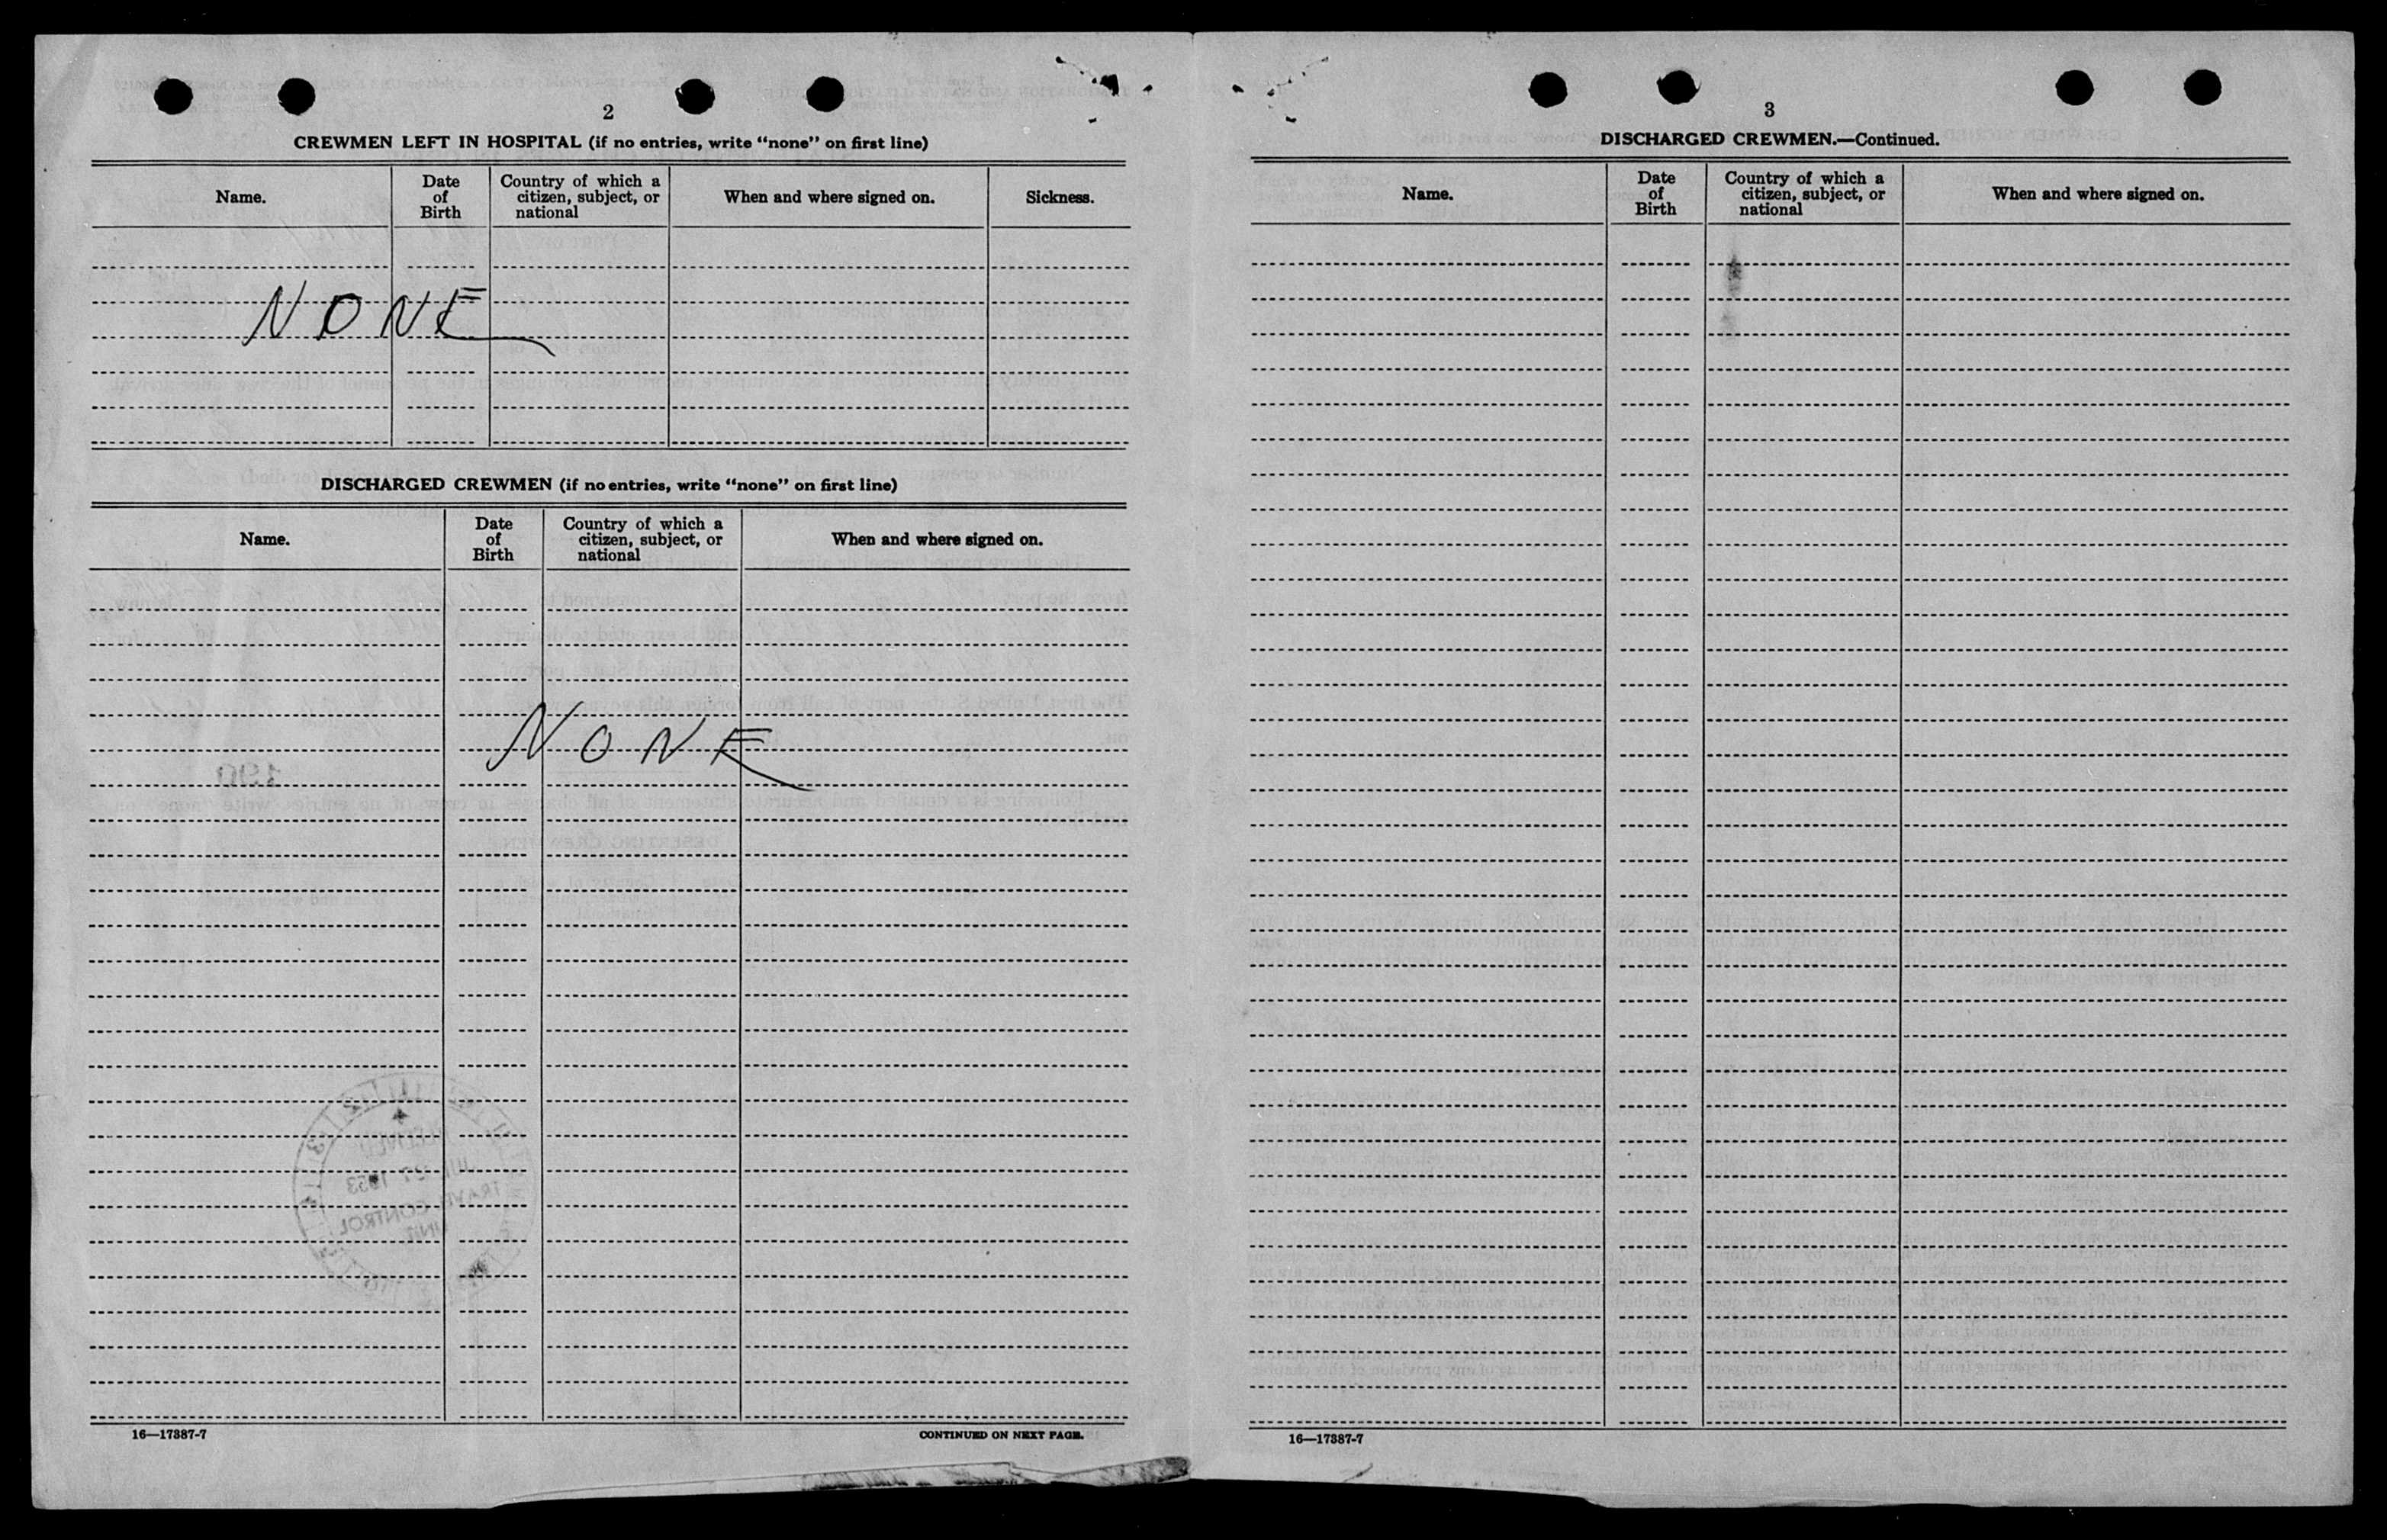 2
CREWMEN LEFT IN HOSPITAL (if no entries, write "none" on first line)
Name.
Date of Birth
Country of which a citizen, subject, or national
When and where signed on.
Sickness.
NONE
DISCHARGED CREWMEN (if no entries, write "none" on first line)
Name.
Date of Birth
Country of which a citizen, subject, or national
When and where signed on.
NONE
190
RECEIVED
JUL 27 1953
TRAVEL CONTROL
UNIT
16—17387-7
CONTINUED ON NEXT PAGE.
3
DISCHARGED CREWMEN.—Continued.
Name.
Date of Birth
Country of which a citizen, subject, or national
When and where signed on.
16—17387-7